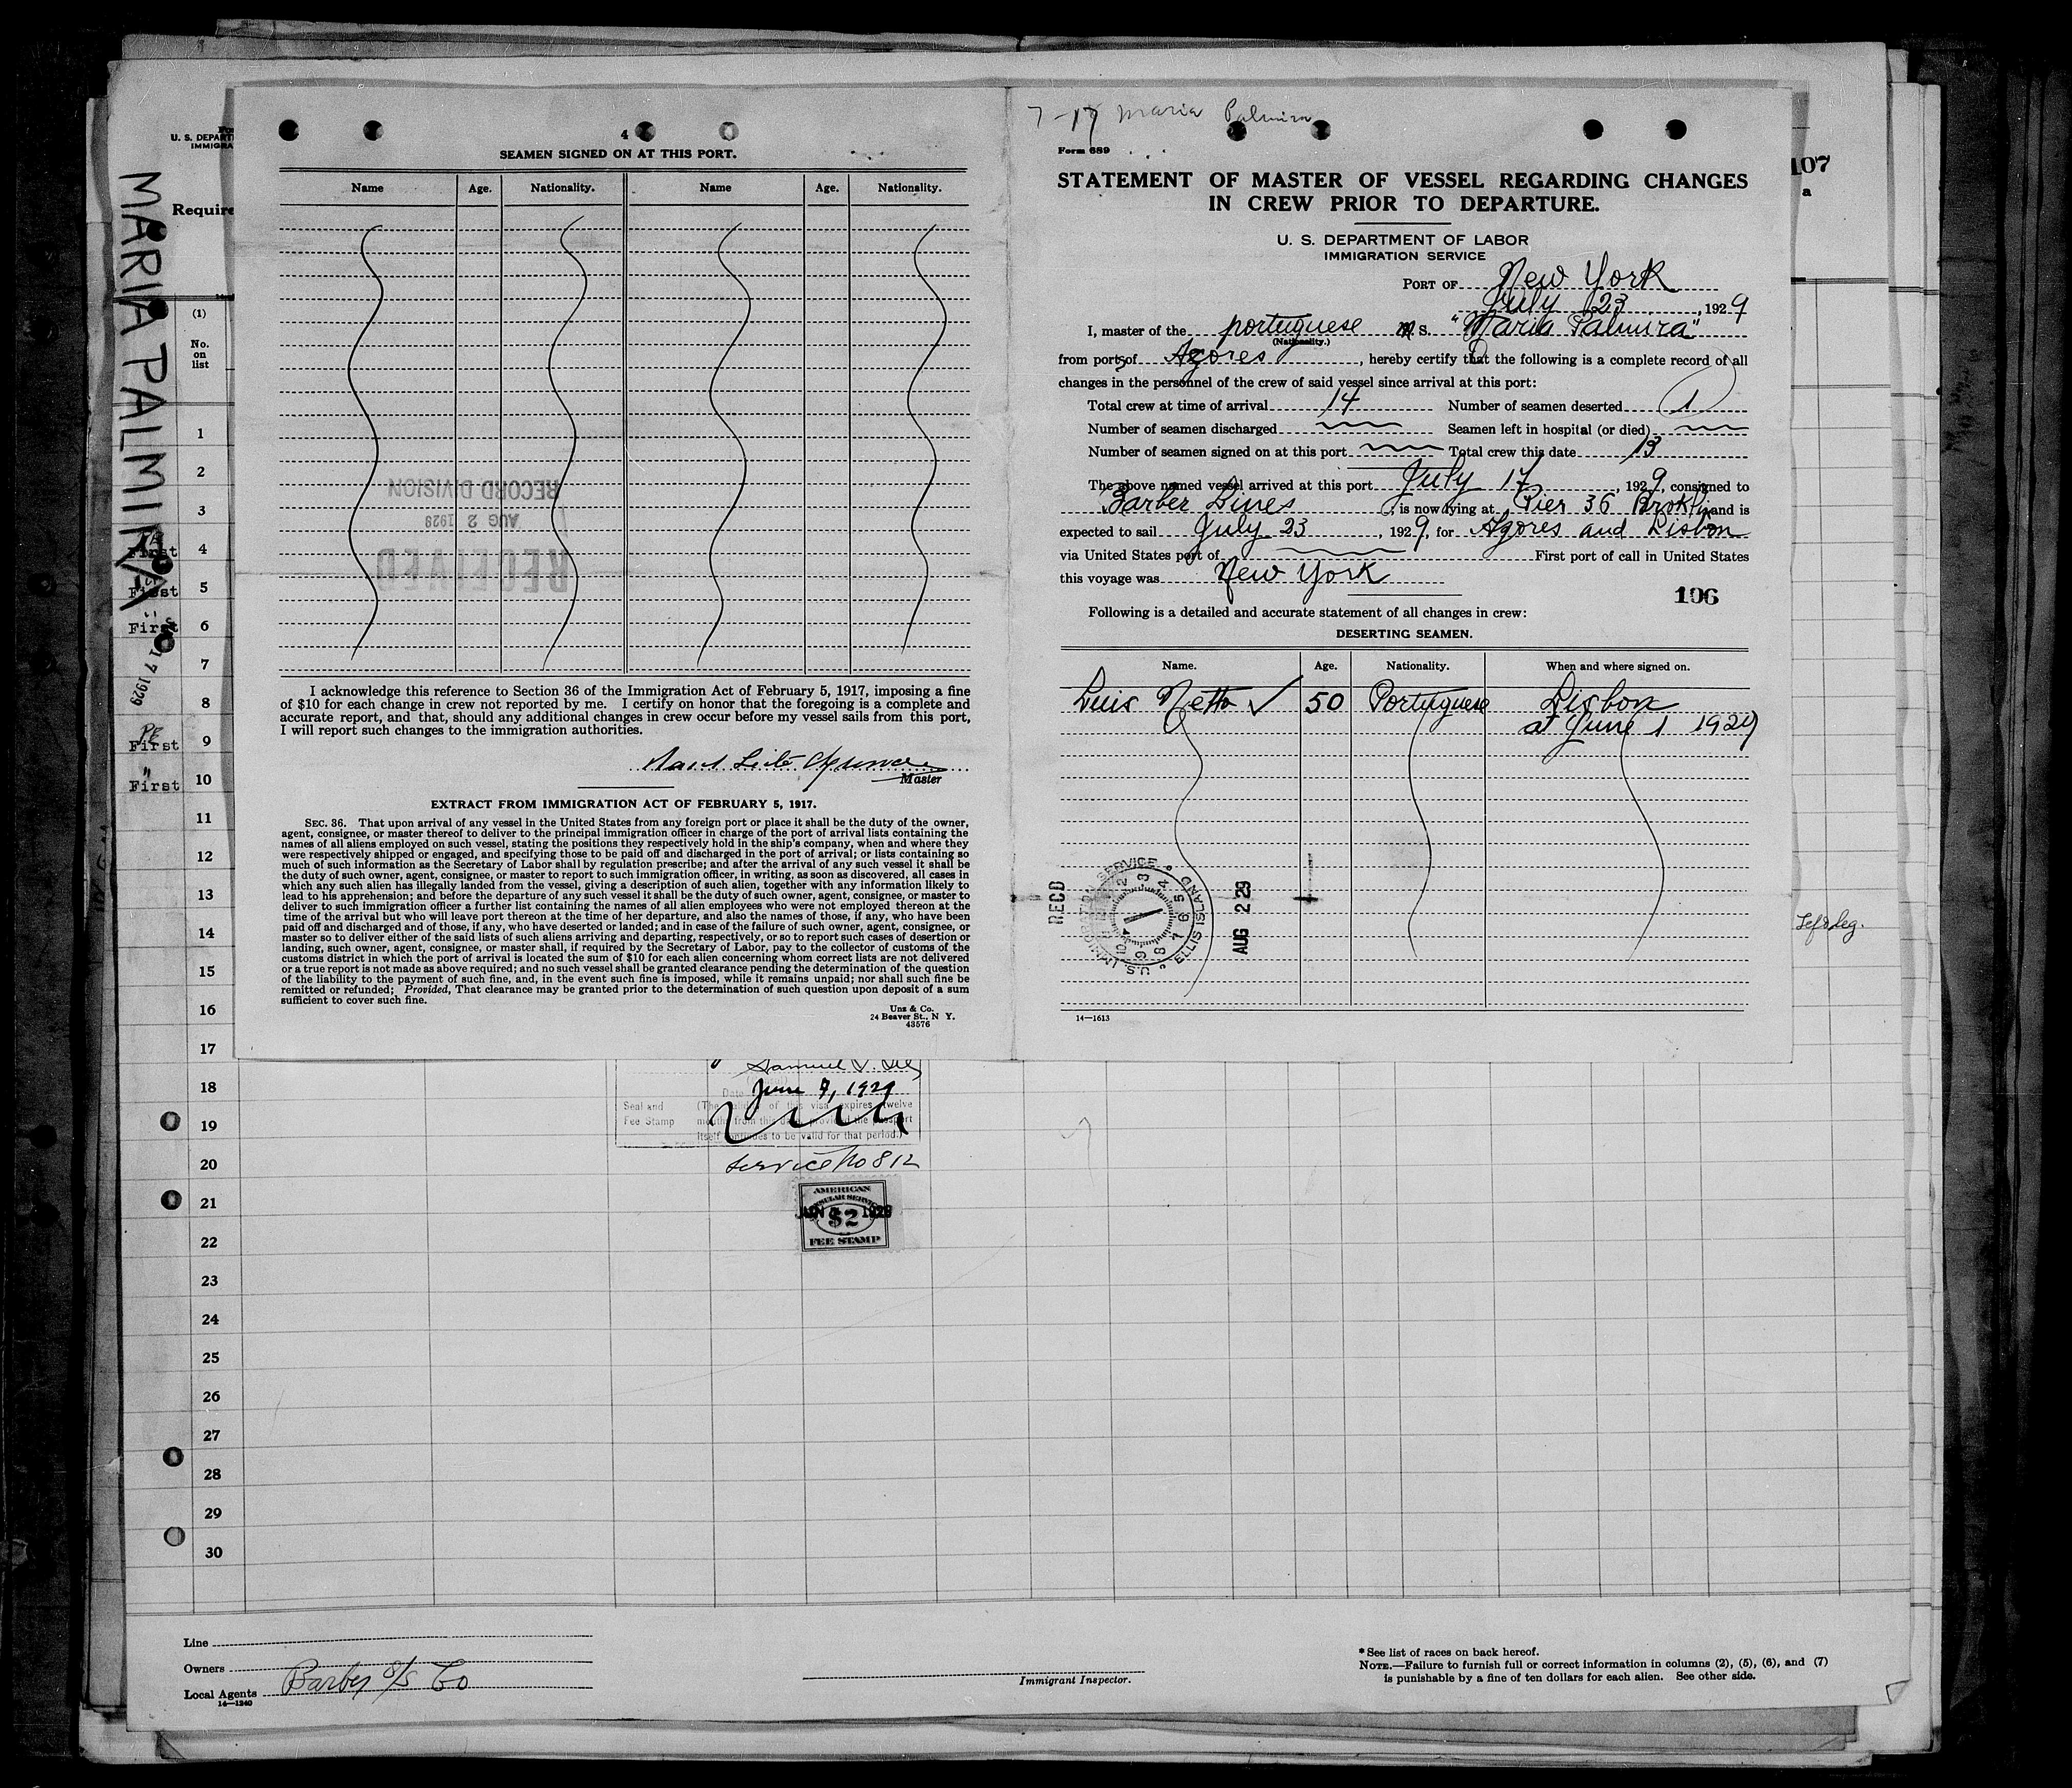 7-17 Maria Palmira
4
SEAMEN SIGNED ON AT THIS PORT.
Name Age. Nationality. Name Age. Nationality.
RECORD DIVISION
AUG 2 1929
RECEIVED
I acknowledge this reference to Section 36 of the Immigration Act of February 5, 1917, imposing a fine
of $10 for each change in crew not reported by me. I certify on honor that the foregoing is a complete and
accurate report, and that, should any additional changes in crew occur before my vessel sails from this port,
I will report such changes to the immigration authorities.
Master
EXTRACT FROM IMMIGRATION ACT OF FEBRUARY 5, 1917.
SEC. 36. That upon arrival of any vessel in the United States from any foreign port or place it shall be the duty of the owner,
agent, consignee, or master thereof to deliver to the principal immigration officer in charge of the port of arrival lists containing the
names of all aliens employed on such vessel, stating the positions they respectively hold in the ship's company, when and where they
were respectively shipped or engaged, and specifying those to be paid off and discharged in the port of arrival; or lists containing so
much of such information as the Secretary of Labor shall by regulation prescribe; and after the arrival of any such vessel it shall be
the duty of such owner, agent, consignee, or master to report to such immigration officer, in writing, as soon as discovered, all cases in
which any such alien has illegally landed from the vessel, giving a description of such alien, together with any information likely to
lead to his apprehension; and before the departure of any such vessel it shall be the duty of such owner, agent, consignee, or master to
deliver to such immigration officer a further list containing the names of all alien employees who were not employed thereon at the
time of the arrival but who will leave port thereon at the time of her departure, and also the names of those, if any, who have been
paid off and discharged and of those, if any, who have deserted or landed; and in case of the failure of such owner, agent, consignee, or
master so to deliver either of the said lists of such aliens arriving and departing, respectively, or so to report such cases of desertion or
landing, such owner, agent, consignee, or master shall, if required by the Secretary of Labor, pay to the collector of customs of the
customs district in which the port of arrival is located the sum of $10 for each alien concerning whom correct lists are not delivered
or a true report is not made as above required; and no such vessel shall be granted clearance pending the determination of the question
of the liability to the payment of such fine, and, in the event such fine is imposed, while it remains unpaid; nor shall such fine be
remitted or refunded; Provided, That clearance may be granted prior to the determination of such question upon deposit of a sum
sufficient to cover such fine.
Unz & Co.
24 Beaver St., N Y.
43576
Form 689
STATEMENT OF MASTER OF VESSEL REGARDING CHANGES
IN CREW PRIOR TO DEPARTURE.
U. S. DEPARTMENT OF LABOR
IMMIGRATION SERVICE
PORT OF New York
July 23, 1929
I, master of the portuguese M S. "Maria Palmira"
(Nationality.)
from ports of Azores, hereby certify that the following is a complete record of all
changes in the personnel of the crew of said vessel since arrival at this port:
Total crew at time of arrival 14 Number of seamen deserted 1
Number of seamen discharged Seamen left in hospital (or died)
Number of seamen signed on at this port Total crew this date 13
The above named vessel arrived at this port July 17, 1929, consigned to
Barber Lines, is now lying at Pier 36 Brokl'n and is
expected to sail July 23, 1929, for Azores and Lisbon
via United States port of First port of call in United States
this voyage was New York
106
Following is a detailed and accurate statement of all changes in crew:
DESERTING SEAMEN.
Name. Age. Nationality. When and where signed on.
Luis Netto ✓ 50 Portuguese Lisbon
at June 1 1929
RECD
U.S. IMMIGRATION SERVICE ELLIS ISLAND
2 3 4 5 6 7 8 9 10
AUG 2 29
14—1613
107
a
U. S. DEPART
IMMIGRA
MARIA PALMIRA
Require
(1)
No.
on
list
1
2
3
First 4
First 5
First 6
7
17 1929
8
PE
First 9
"
First 10
11
12
13
14
15
16
17
18
19
20
21
22
23
24
25
26
27
28
29
30
June 7, 1929
Date
Seal and
Fee Stamp
(The of this visa expires twelve
months from this date, provided the passport
itself continues to be valid for that period.)
Service No 812
AMERICAN
CONSULAR SERVICE
JUN 1929
$2
FEE STAMP
Line
Owners
Local Agents Barber S/S Co
14—1240
Immigrant Inspector.
* See list of races on back hereof.
NOTE.—Failure to furnish full or correct information in columns (2), (5), (6), and (7)
is punishable by a fine of ten dollars for each alien. See other side.